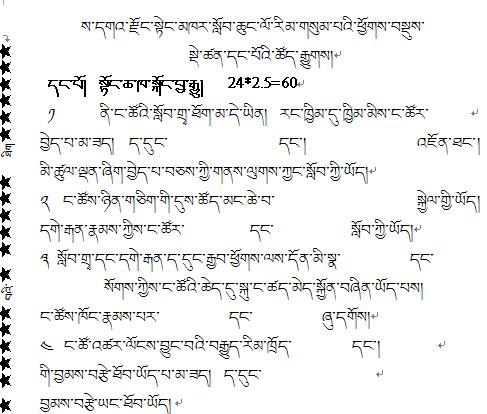 ས་དགའ་རྫོང་སྟེང་མཁར་སློབ་ཆུང་ལོ་རིམ་གསུམ་པའི་ཕྱོགས་བསྡུས་
སྡེ་ཚན་དང་པོའི་ཚོད་རྒྱུགས།
དང་པོ། སྟོང་ཆ་ཁ་སྐོང་བྱ་རྒྱུ། 24*2.5=60
༡ ནི་ང་ཚོའི་སློབ་གྲྭ་ཐོག་མ་དེ་ཡིན། རང་ཁྱིམ་དུ་ཁྱིམ་མིས་ང་ཚོར་
བྱེད་པ་མ་ཟད། ད་དུང་ དང་། འཇོན་ཐང་།
མི་ཚུལ་ལྡན་ཞིག་བྱེད་པ་བཅས་ཀྱི་གནས་ལུགས་ཀྱང་སློབ་ཀྱི་ཡོད།
༢ ང་ཚོས་ཉིན་གཅིག་གི་དུས་ཚོད་མང་ཆེ་བ་ སྐྱེལ་གྱི་ཡོད།
དགེ་རྒན་རྣམས་ཀྱིས་ང་ཚོར་ དང་ སློབ་ཀྱི་ཡོད།
༣ སློབ་གྲྭ་དང་དགེ་རྒན་ད་དུང་རྒྱབ་ཕྱོགས་ལས་དོན་མི་སྣ་ དང་
སོགས་ཀྱིས་ང་ཚོའི་ཆེད་དུ་སྐུ་ང་ཚད་མེད་སྐྱོན་བཞིན་ཡོད་པས།
ང་ཚོས་ཁོང་རྣམས་པར་ དང་ ཞུ་དགོས།
༤ ང་ཚོ་འཚར་ལོངས་བྱུང་བའི་བརྒྱུད་རིམ་ཁྲོད་ དང་།
གི་བྱམས་བརྩེ་ཐོབ་ཡོད་པ་མ་ཟད། ད་དུང་
བྱམས་བརྩེ་ཡང་ཐོབ་ཡོད།